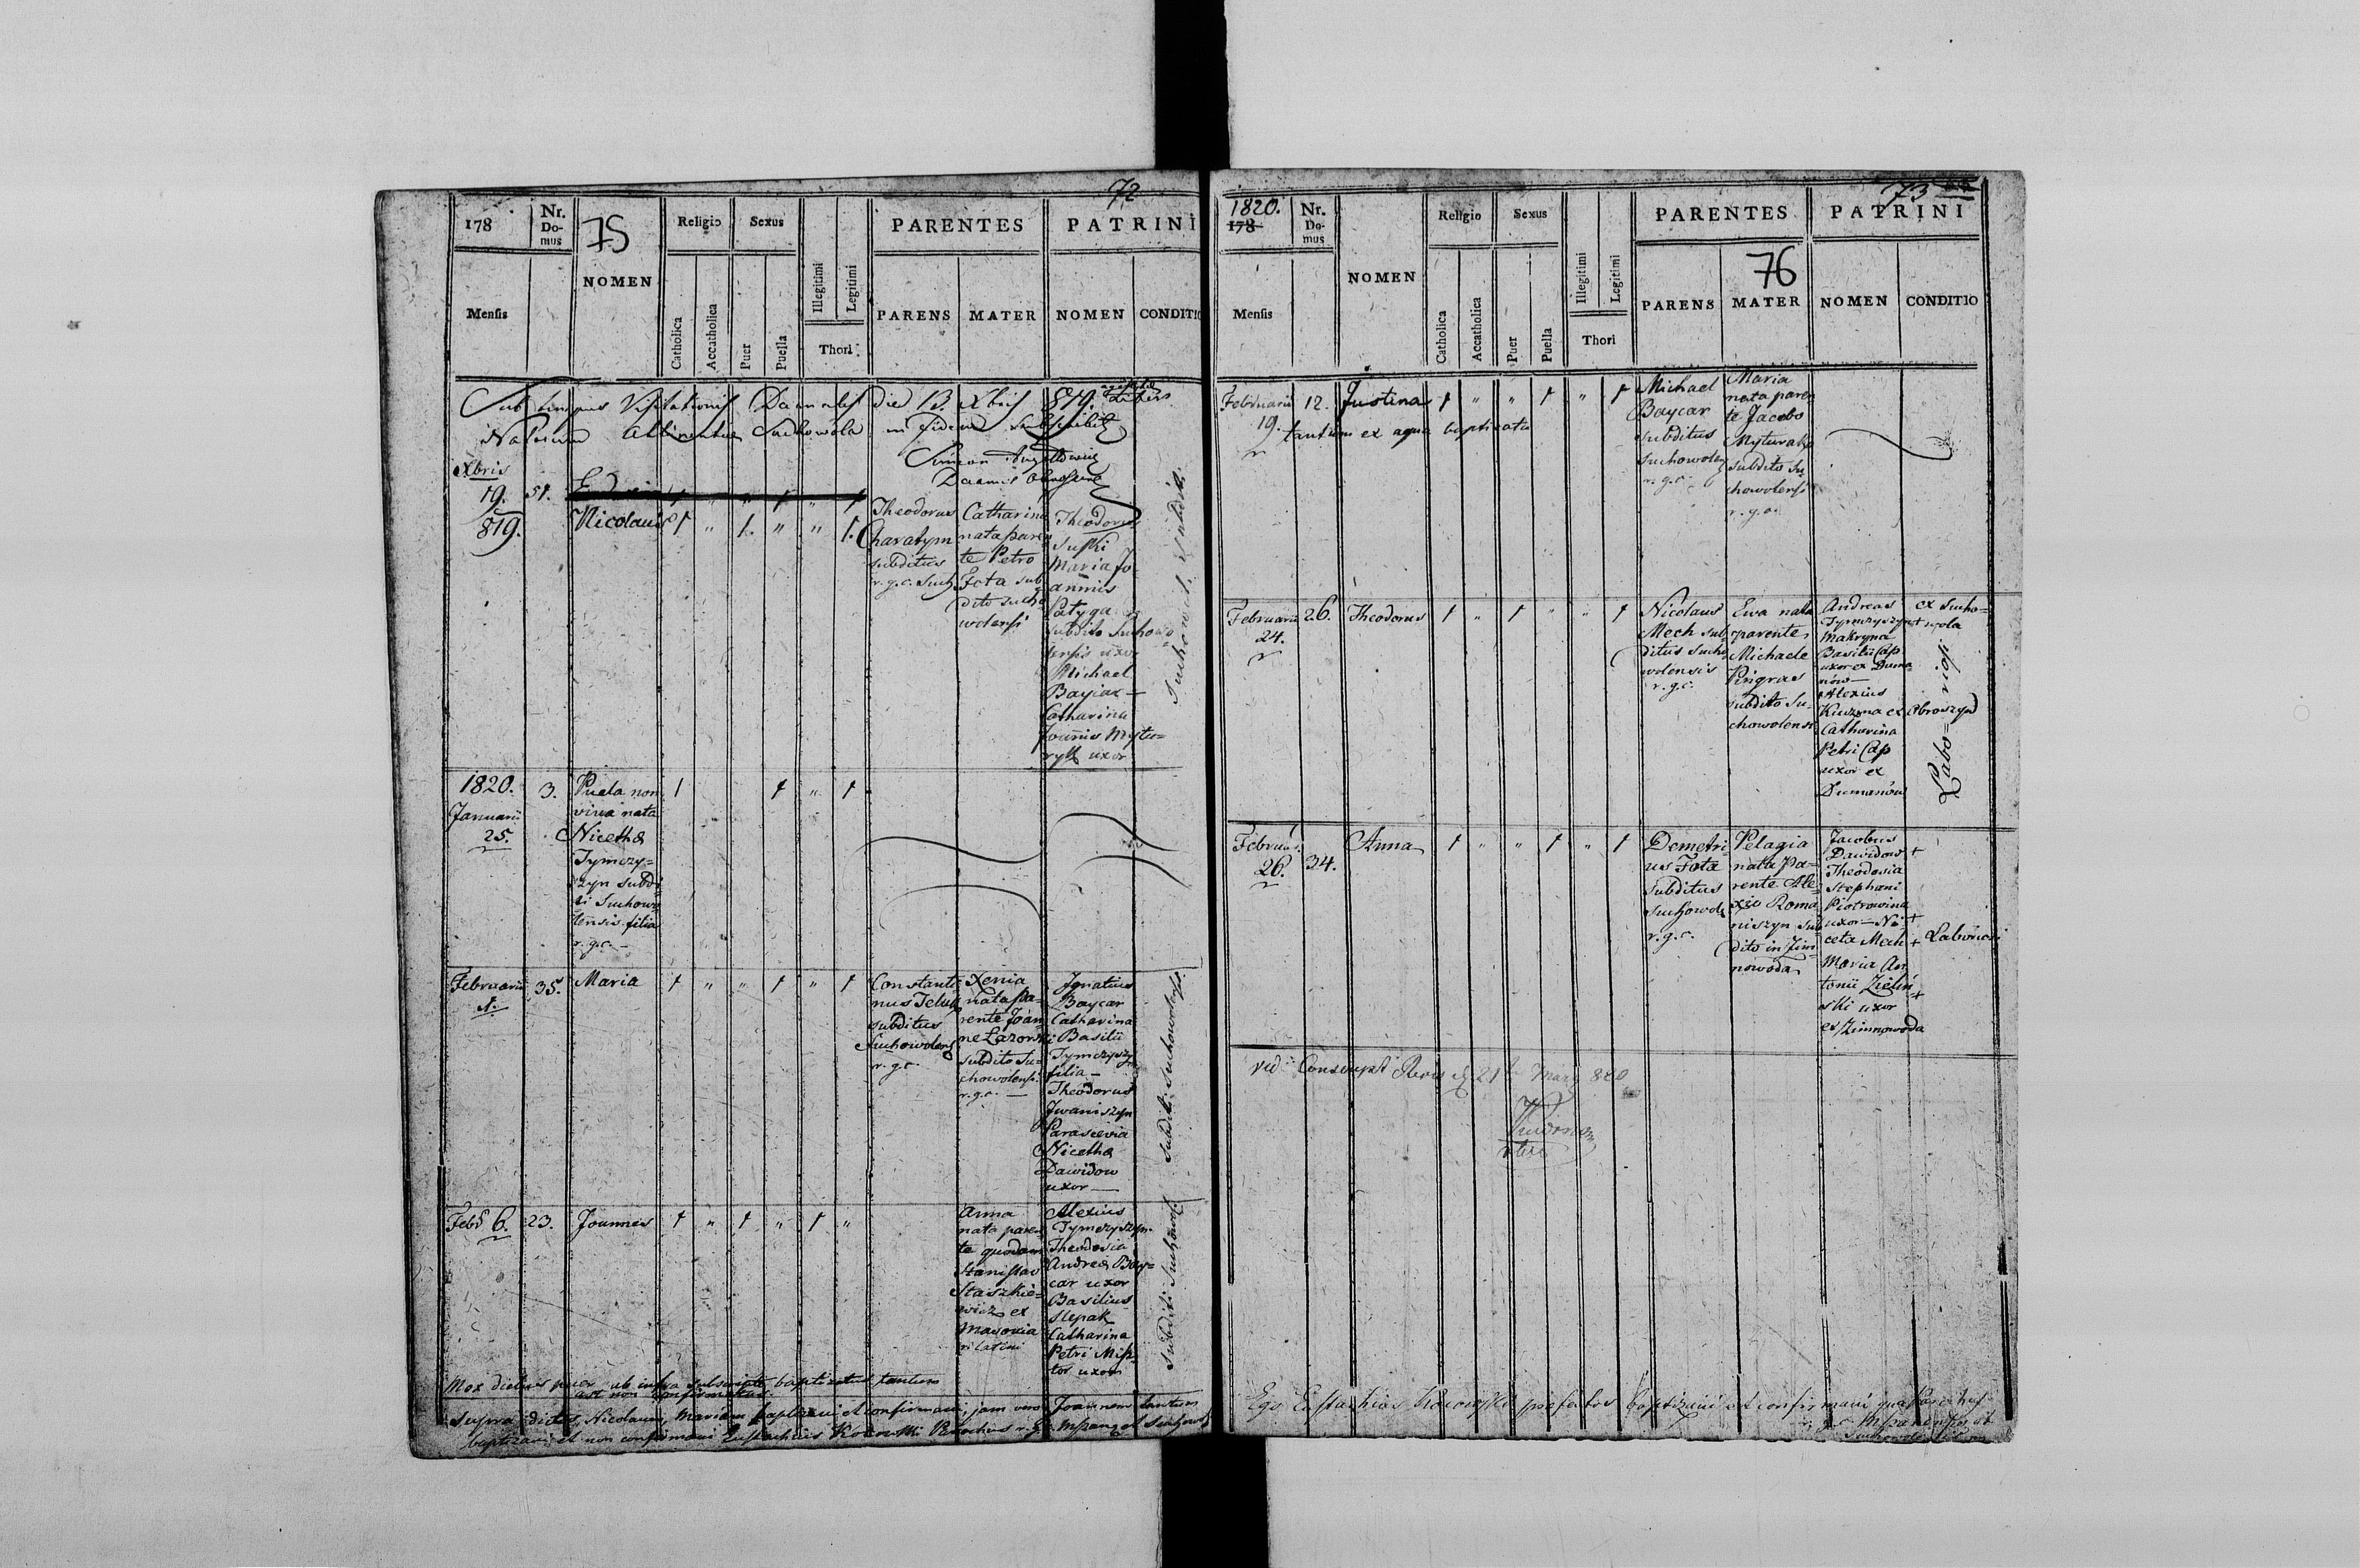 72
178
Nr.
Do-
mus
75
NOMEN
Religio
Sexus
PARENTES
PATRINI
Mensis
Catholica
Accatholica
Puer
Puella
Illegitimi
Legitimi
Thori
PARENS
MATER
NOMEN
CONDITIO
Sub tempus Visitationis Decanalis die 13. Xbris 819.
Suchowola in fidem
Simeon
Xbris
19.
819.
51.
Nicolaus
1
"
1.
"
"
1.
Theodorus
Charatym
subditus
r.g.c. Such
Catharina
nata paren
te Petro
Fota sub
dito sucho
wolensi
Theodorus
Suski
Maria Jo
annis
Patyga
subdito Suchowo
lensis uxor
Michael
Bayjar —
Catharina
Joannis Mytu=
ryk uxor
1820.
Januarii
25.
3.
Puela non
viva nata
Nicetha
Tymczy=
szyn subdi
ti Suchowo
lensis filia
r.g.c. —
1
1
"
1
Februarii
1.
35.
Maria
1
"
"
1
"
1
Constanti
nus Teluk
subditus
Suchowolens
r.g.c.
Xenia
nata pa=
rente Joan
ne Lazowski
subdito Su=
chowolensi
r.g.c. —
Ignatius
Baycar
Catharina
Basilii
Tymczyszyn
filia —
Theodorus
Iwaniszyn
Parascevia
Nicetha
Dawidow
uxor —
Febr 6.
23.
Joannes
1
"
1
"
1
"
Anna
nata paren
te quodam
Stanislao
Staszkie=
wicz ex
Masovia
r. latini
Alexius
Tymczyszyn
Theodosia
Andrea Bay=
car uxor
Basilius
Slepak
Catharina
Petri Mis
tor uxor
Subditi Suchowol
Mox dictus puer ab infra subscripto baptizatus tantum
ast non confirmatus.
Supra dictos, Nicolaum, Mariam baptizavi et confirmavi, jam vero Joannem tantum
baptizavi et non confirmavi Eustachius Parochus r.g.c.
73
1820.
178
Nr.
Do-
mus
NOMEN
Religio
Sexus
PARENTES
PATRINI
76
Mensis
Catholica
Accatholica
Puer
Puella
Illegitimi
Legitimi
Thori
PARENS
MATER
NOMEN
CONDITIO
Februarii
19.
12.
Justina
tantum ex aqua baptizata
1
"
"
1
"
1
Michael
Baycar
subditus
Suchowolen
r.g.c.
Maria
nata paren
te Jacobo
Myturak
subdito Su
chowolensi
r.g.c.
Februarii
24.
26.
Theodorus
1
"
1
"
"
1
Nicolaus
Mech sub
ditus Sucho
wolensis
r.g.c.
Ewa nata
parente
Michaele
Pingras
subdito Su=
chowolensi
Andreas
Tymczyszyn
Makryna
Basilii Cap
uxor ex Duma
now —
Alexius
Kuzma ex Obroszyn
Catharina
Petri Cap
uxor ex
Dumanow
ex Sucho=
wola
Labo=riosi
Februar
26.
34.
Anna
1
"
"
1
"
1
Demetri
us Fota
subditus
Suchowol
r.g.c.
Pelagia
nata pa=
rente Ale
xio Roma
niszyn sub
dito in Zim
nowoda
Jacobus
Dawidow +
Theodosia
Stephani
Piotrowina
uxor — Ni +
ceta Mech +
Maria An
tonii Zielin
ski uxor
ex Zimnowoda
Laboriosi
vid Conscript Revis 21 Marz 820
Ego Eustachius prefatos baptizavi et confirmavi qua Parochus
r.g.c.